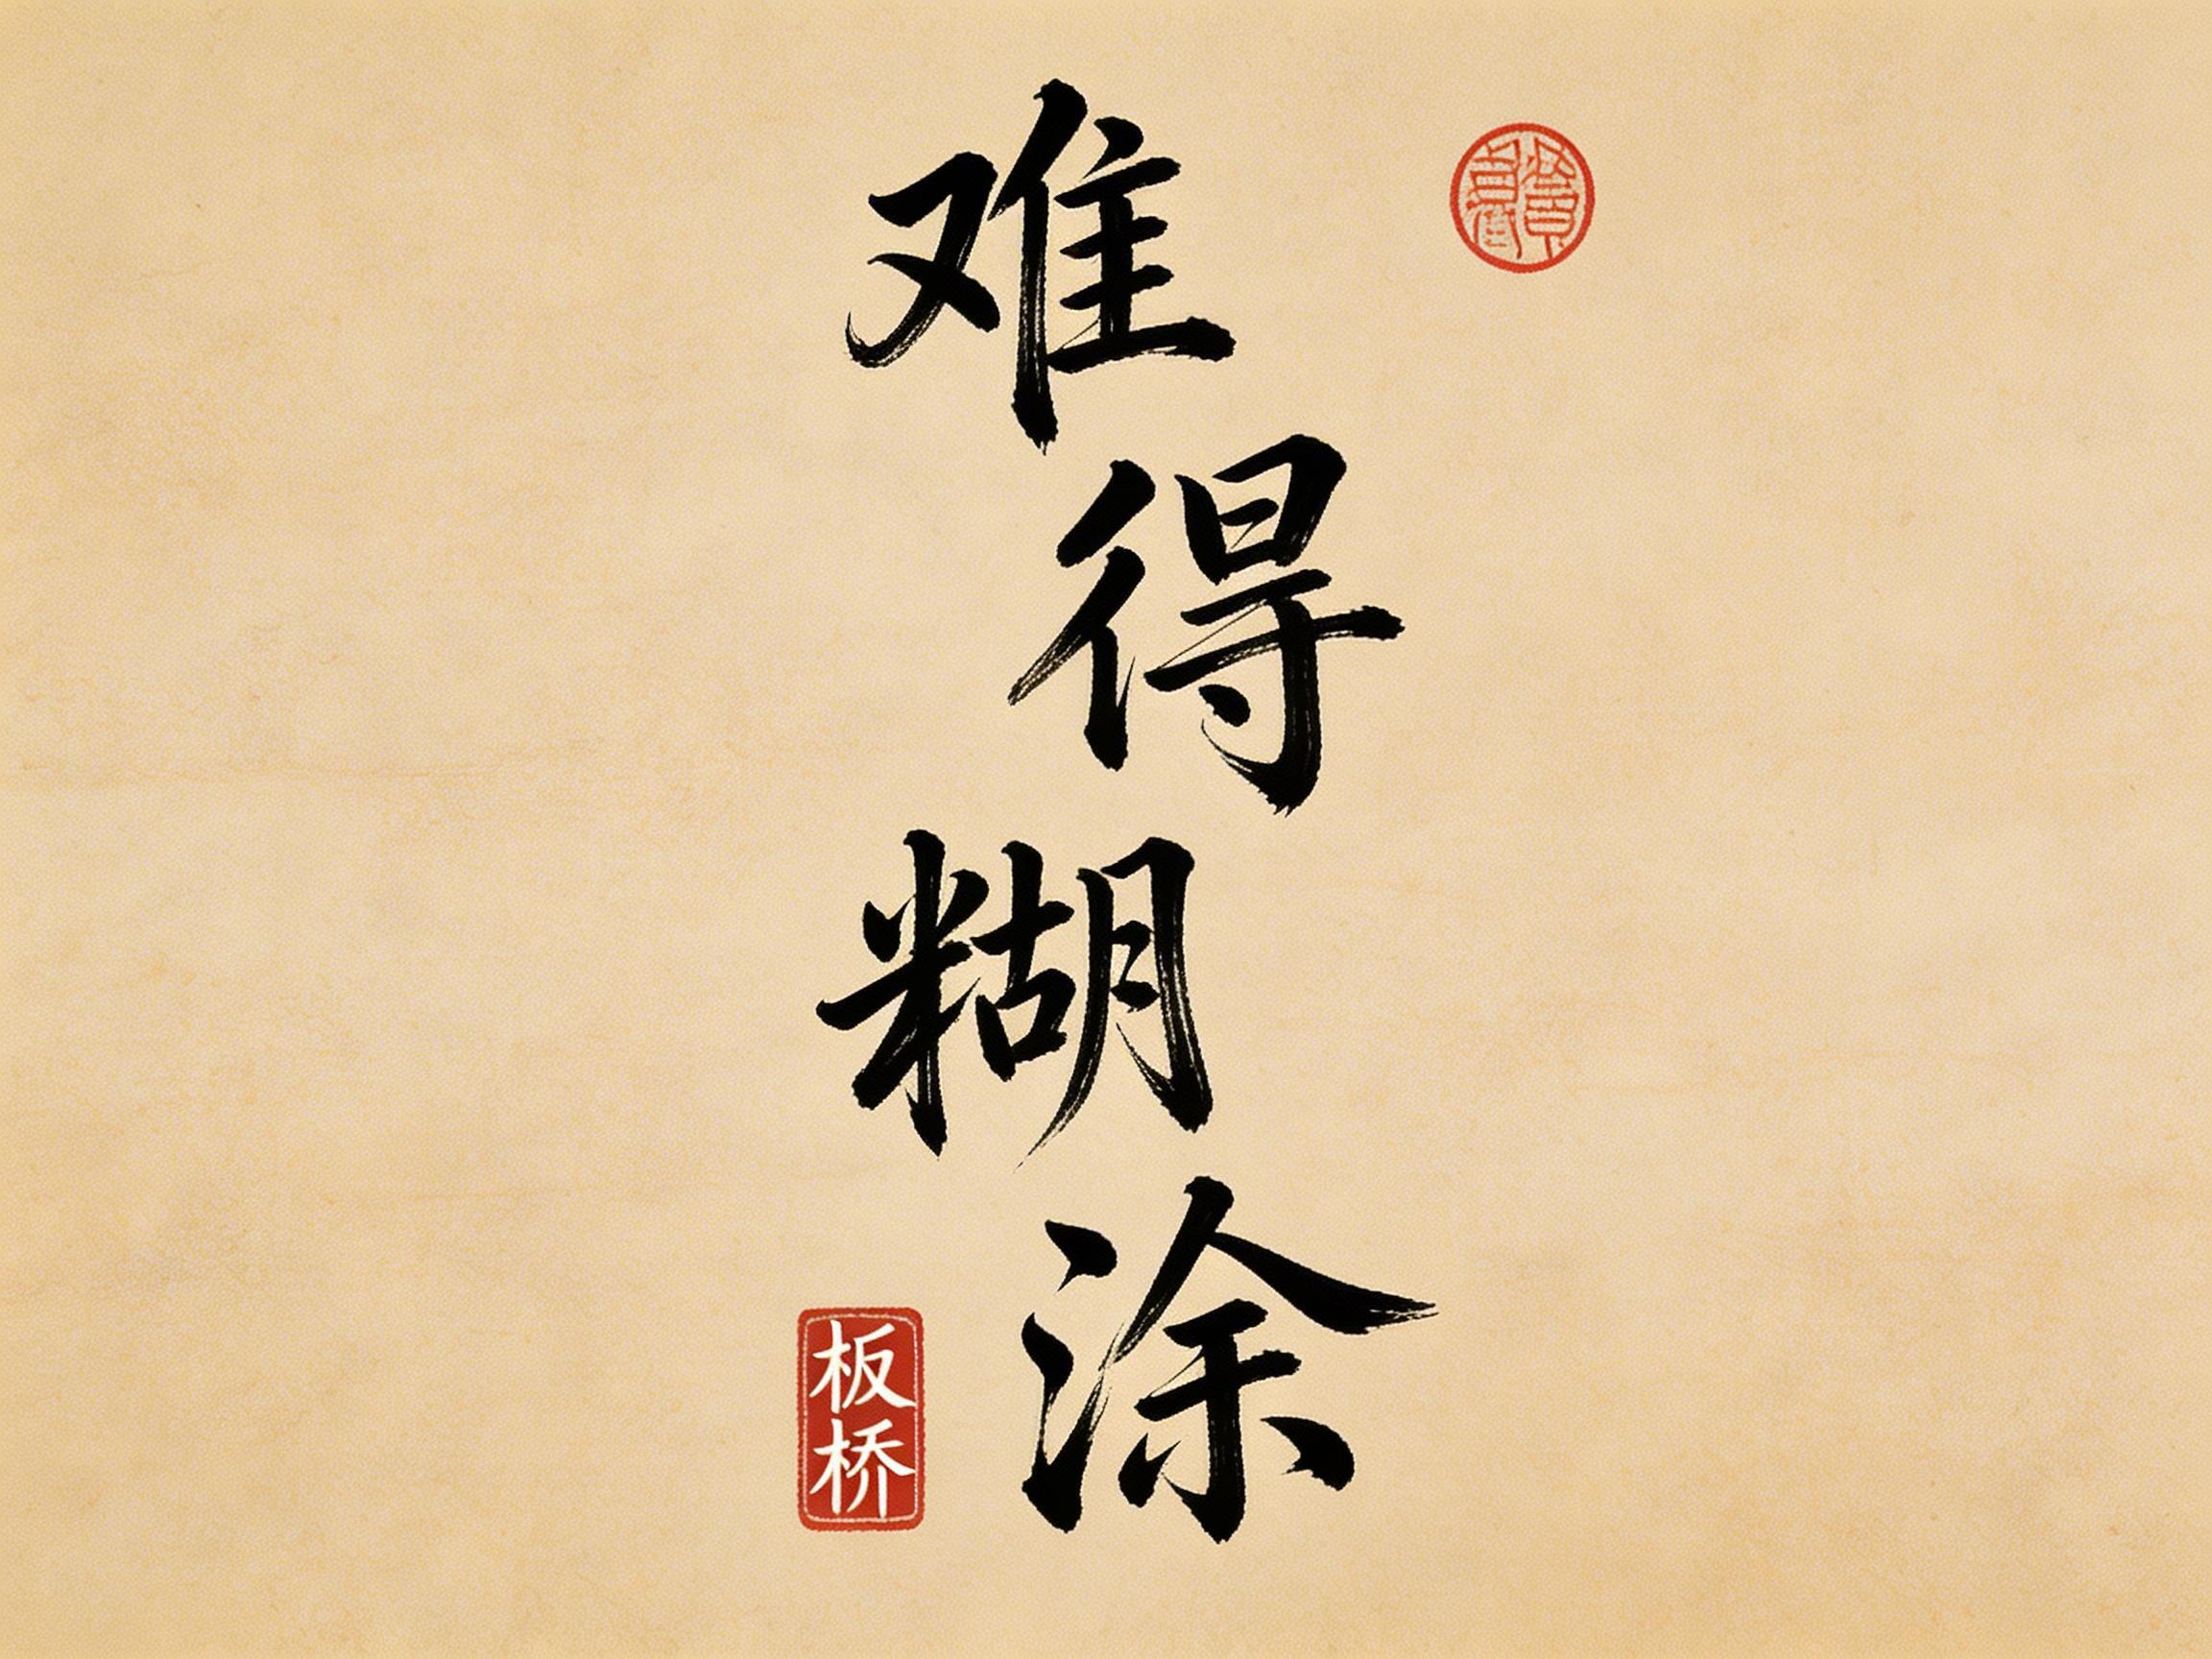 难得糊涂
板桥